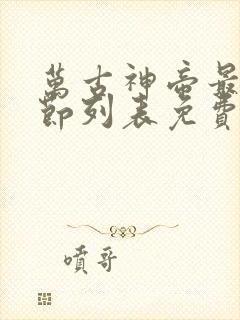 萬古神帝最
節列表免費
噴哥